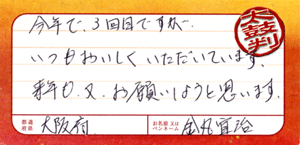 今年で、3回目ですが、
いつもおいしくいただいています。
来年も、又、お願いしようと思います。
太鼓判
都道府県 大阪府
お名前又はペンネーム 金丸宣治